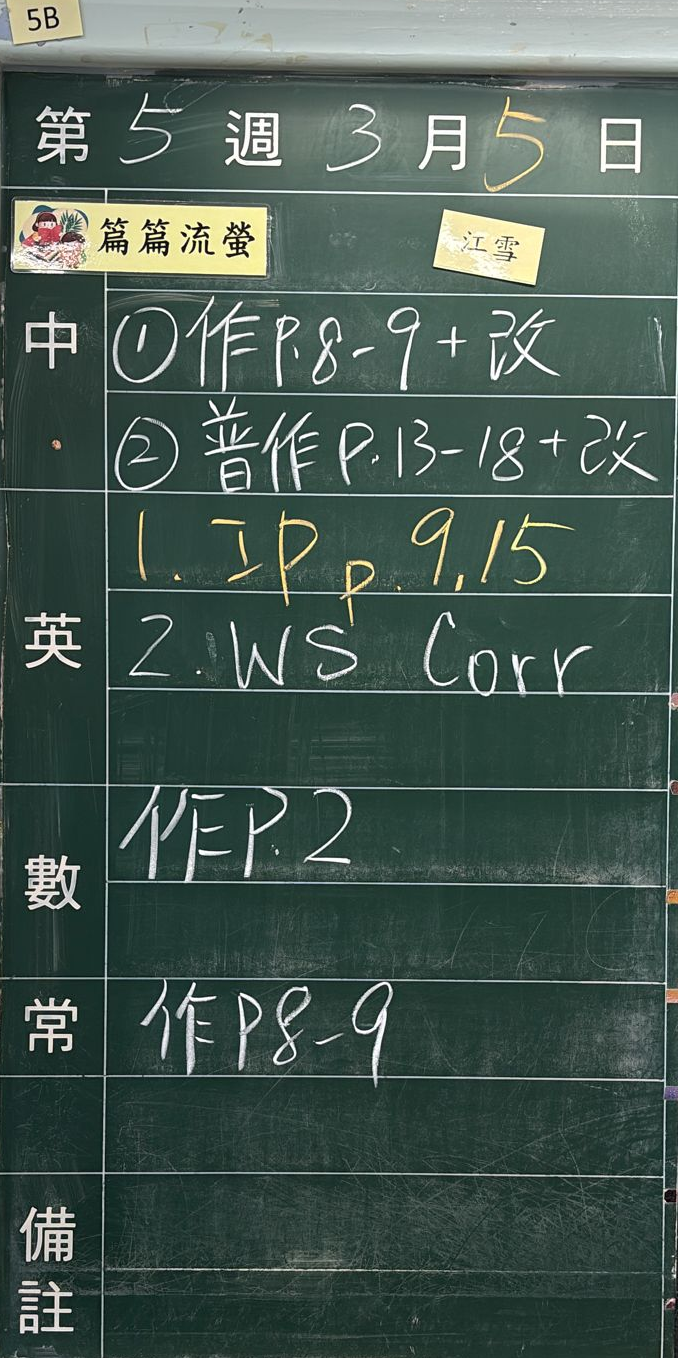 5B
第 5 週 3 月 5 日
篇篇流螢 江雪
中 ①作P.8-9+改
②普作P.13-18+改
英 1. IP p.9,15
2. WS Corr
數 作P.2
常 作P8-9
備註